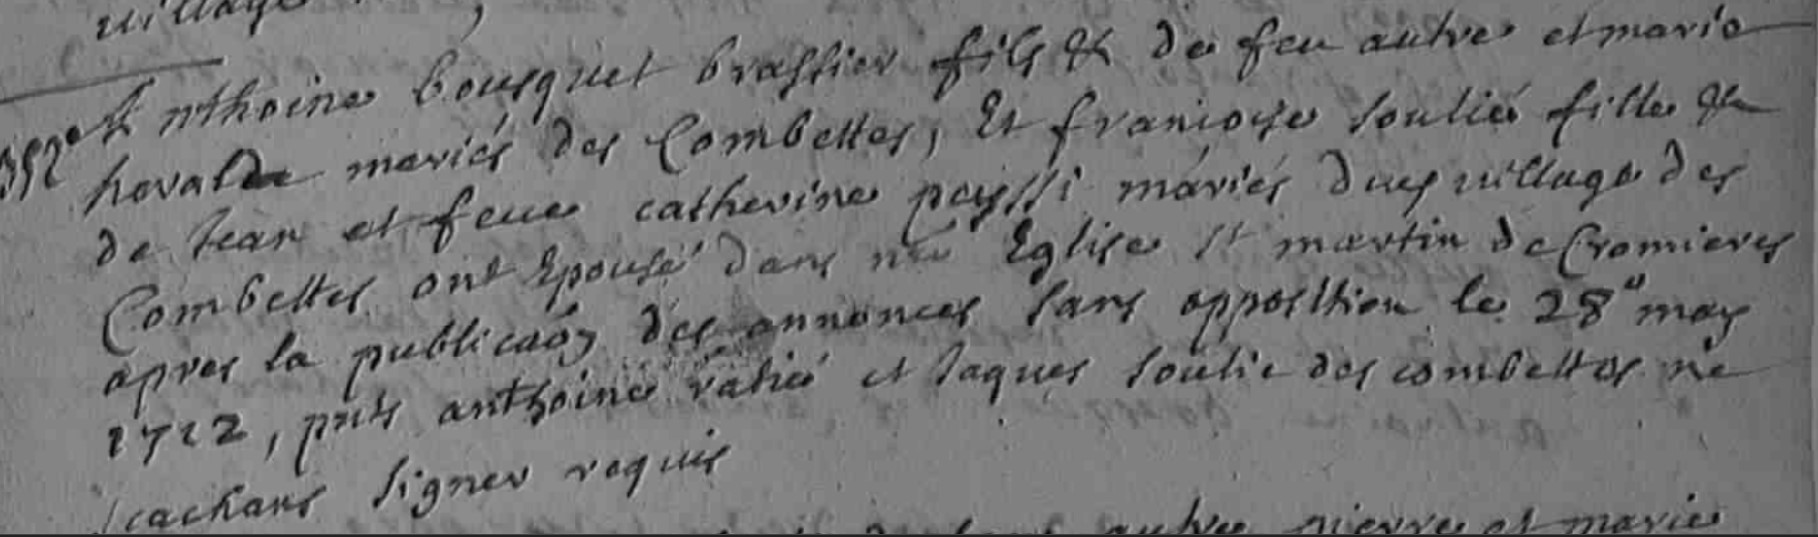 village
Anthoine bousquet brassier fils & de feu autre et marie
novalde mariés des Combettes, Et francoise soulié fille &
de Jean et feue catherine payssi máriés dues village des
Combettes ont Epousé dans nre Eglise St martin de Cromieres
apres la publicaon des annonces sans opposition le 28e may
1712, pnts anthoine ratié et Jaques soulié des combettes ne
scachans signer requis
autre pierre et marie